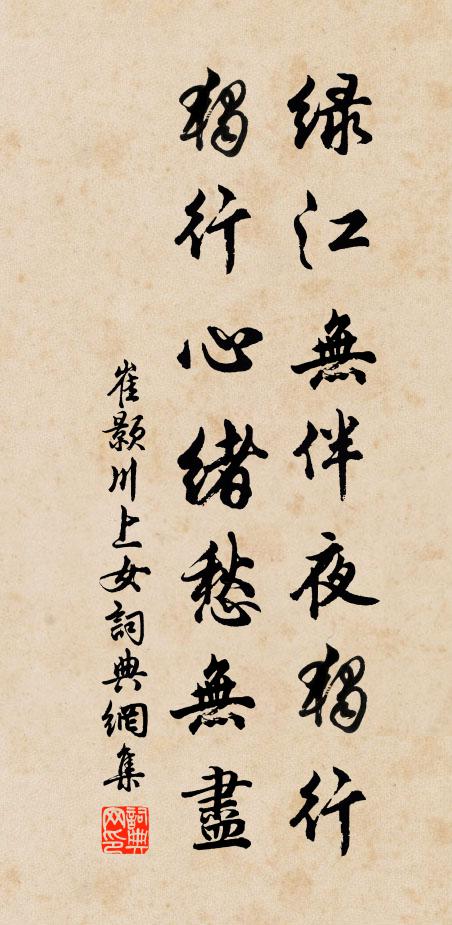 緑江無伴夜獨行
獨行心緒愁無盡
崔顥川上女詞典網集
詞典網印